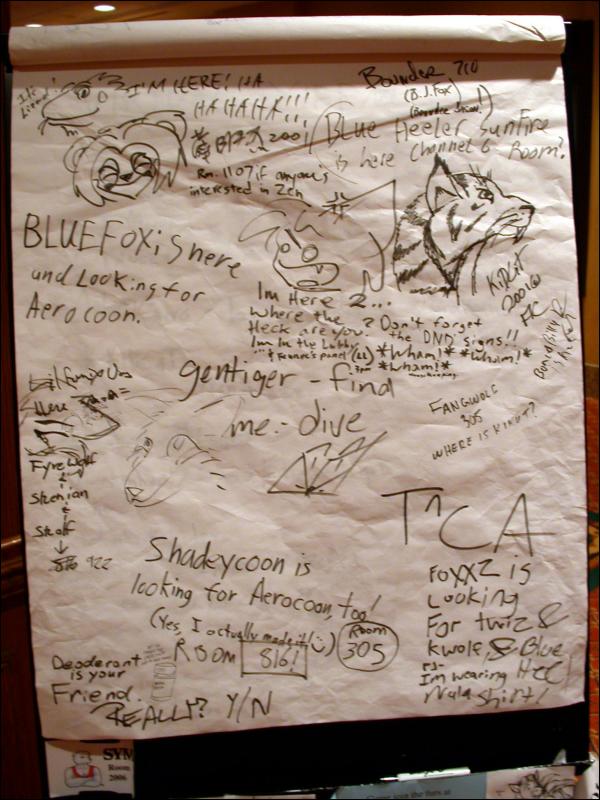 I'M HERE! HA
HAHAHA!!!
2001
Rm. 1107 if anyone's
interested in Zen
Bounder 710
(B.J. Fox)
Blue Heeler Sunfire
is here Channel 6 Room?
BLUEFOX is here
and Looking for
Aerocoon.
Im Here 2...
Where the
Heck are you?
Im In the Lobby
Don't forget
the DND signs!!
*Wham!* *Wham!*
*Wham!*
AC
gentiger - find
me. - dive
FANGWOLF
305
WHERE IS
Here
Fyrewolf
&
Skolf
922
TnCA
Shadeycoon is
looking for Aerocoon, too!
(Yes, I actually made it! :)
ROOM 816!
Room
305
FOXXZ is
Looking
For twiz &
Kwolf, & Blue
Im wearing
Nala Shirt!
Deoderant
is your
Friend.
REALLY? Y/N
SYM
Room
2006